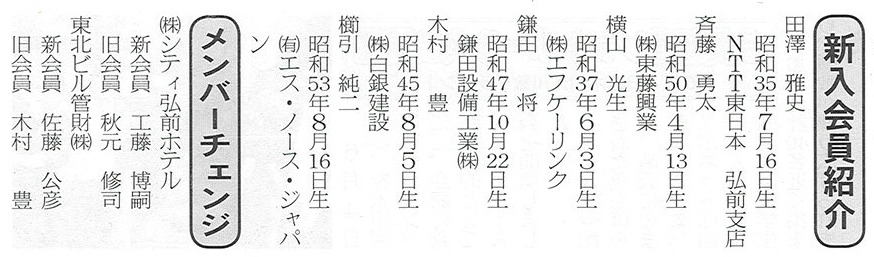 新入会員紹介
田澤 雅史
昭和35年7月16日生
NTT東日本 弘前支店
斉藤 勇太
昭和50年4月13日生
㈱東藤興業
横山 光生
昭和37年6月3日生
㈱エフケーリンク
鎌田 将
昭和47年10月22日生
鎌田設備工業㈱
木村 豊
昭和45年8月5日生
㈱白銀建設
櫛引 純二
昭和53年8月16日生
㈲エス・ノース・ジャパ
ン
メンバーチェンジ
㈱シティ弘前ホテル
新会員 工藤 博嗣
旧会員 秋元 修司
東北ビル管財㈱
新会員 佐藤 公彦
旧会員 木村 豊